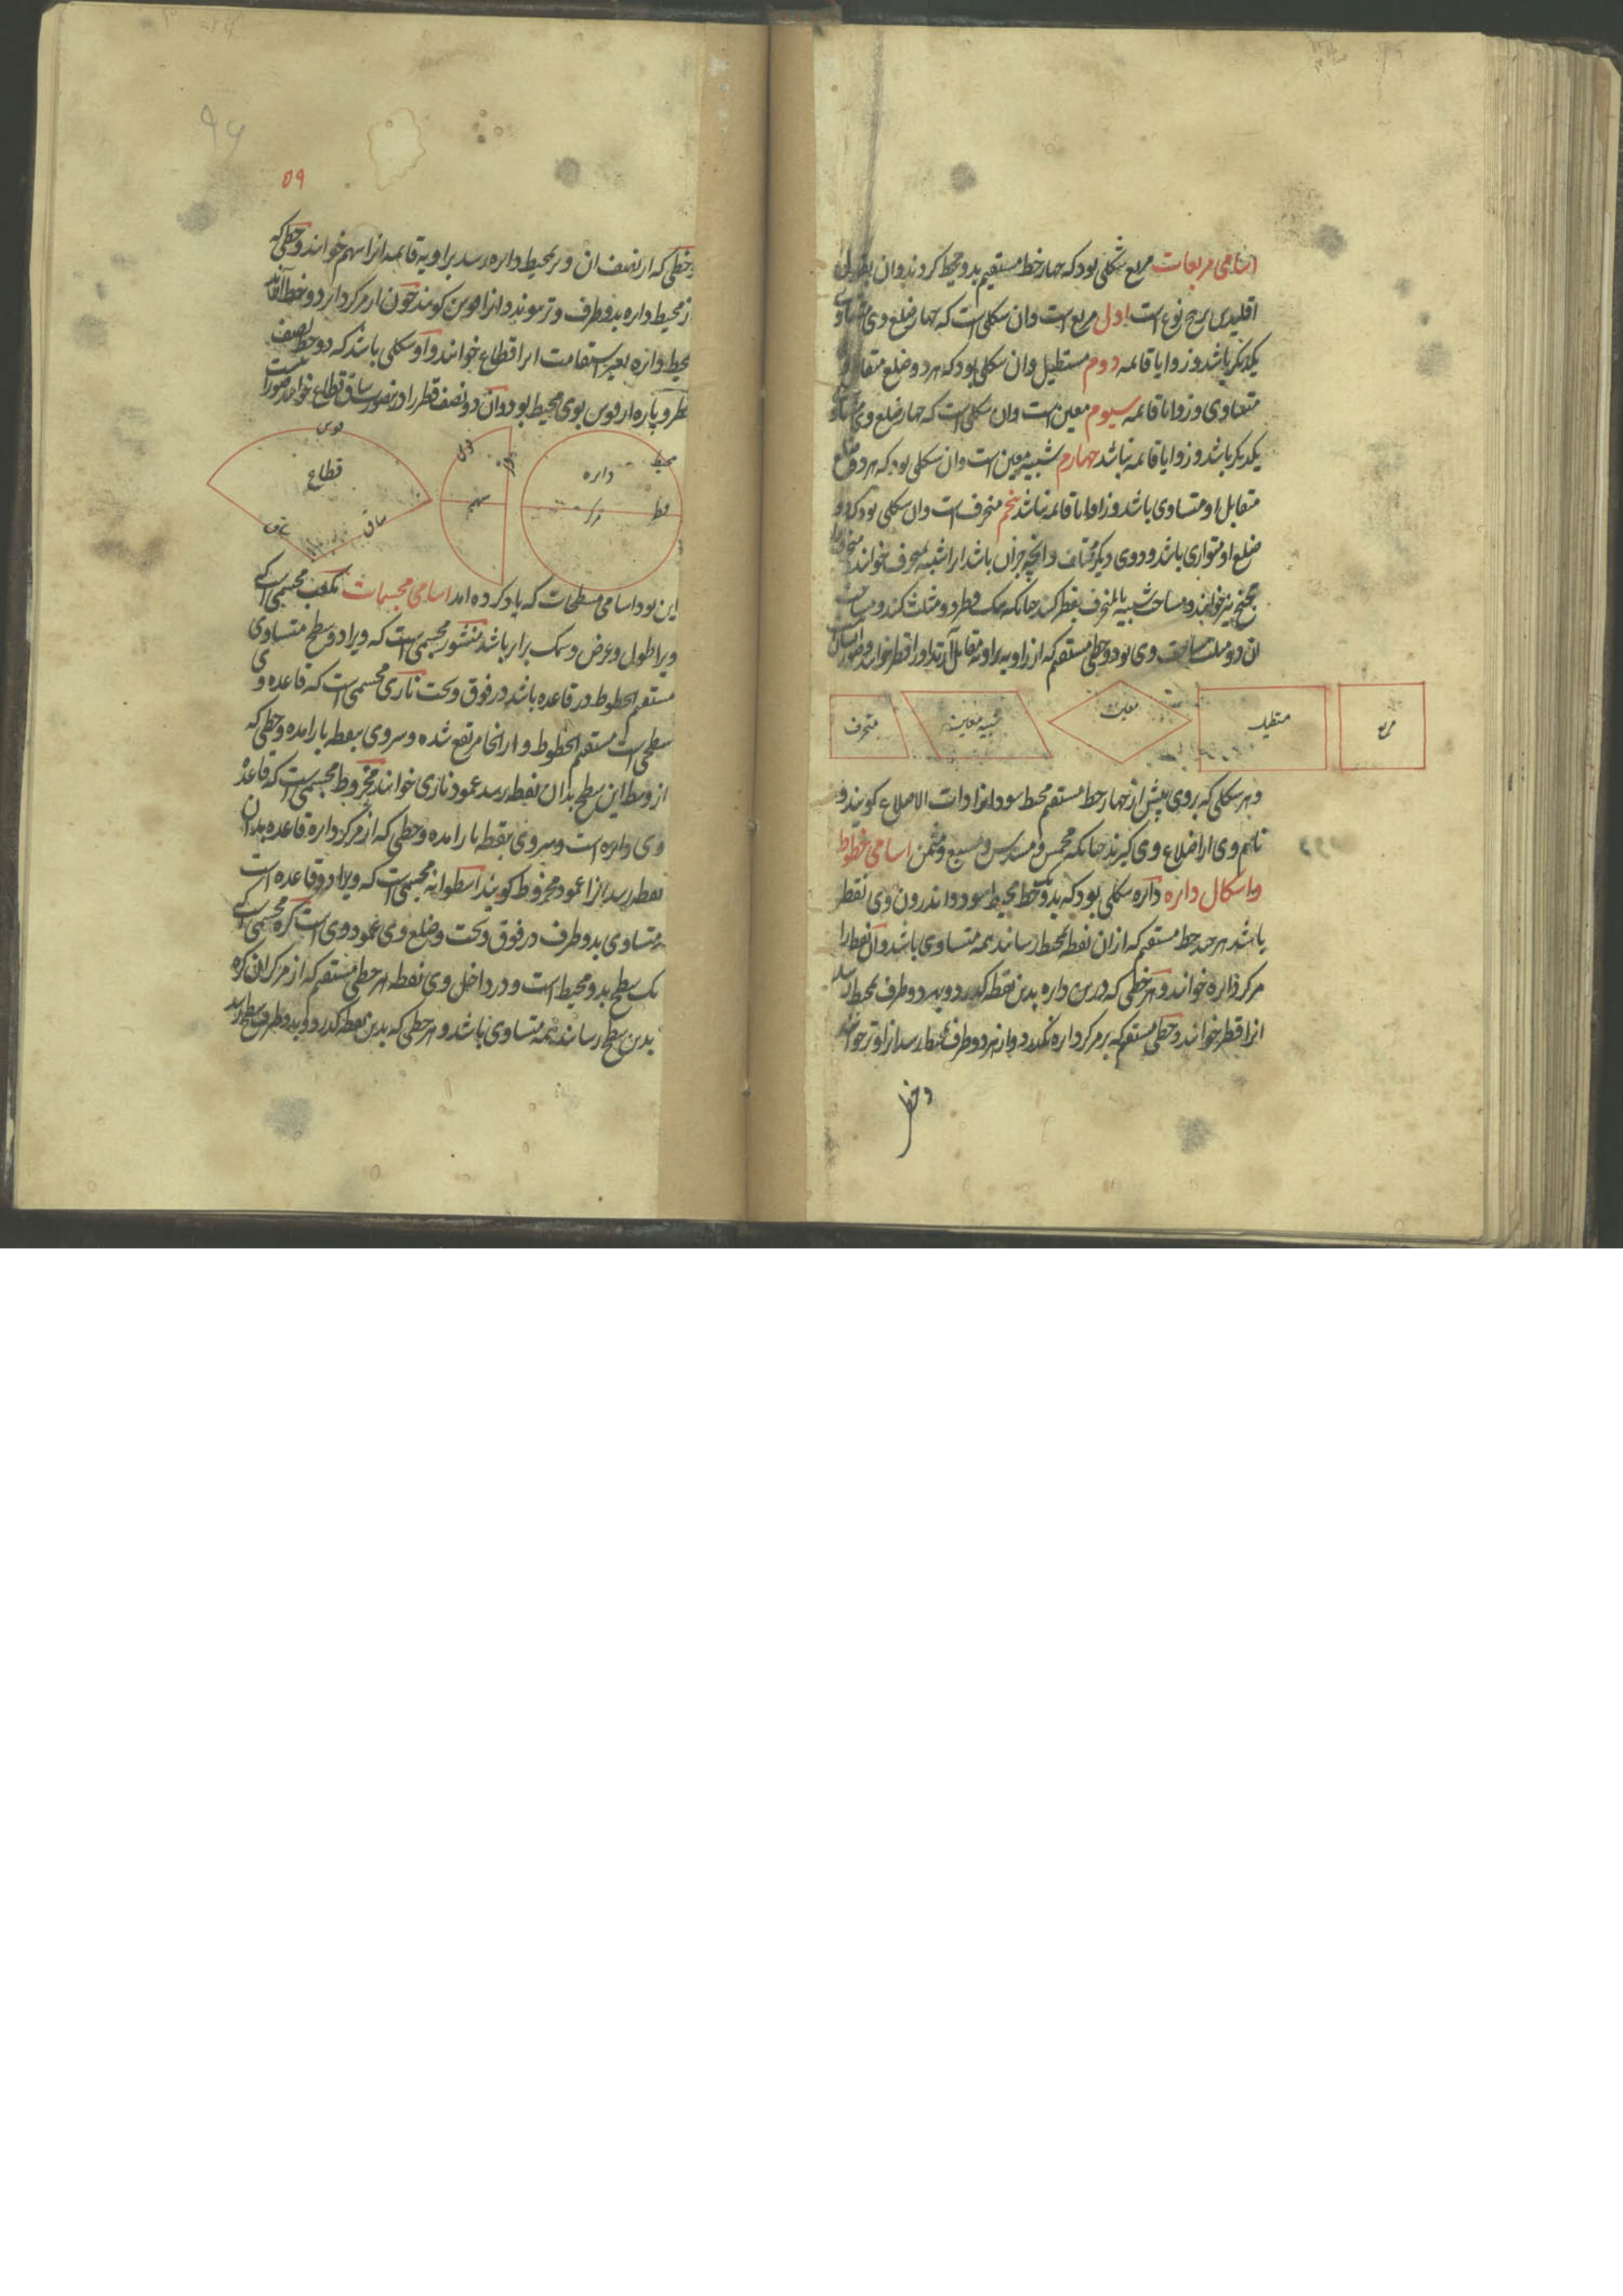 اسامی مربعات مربع شکلی بود که چهار خط مستقیم بدو محیط کردند وان بقول
اقلیدس پنج نوع است اول مربع است وان شکلی است که چهار ضلع وی متساوی
یکدیکر باشد و زوایا قائمه دوم مستطیل وان شکلی بود که هر دو ضلع متقابل او
متساوی و زوایا قائمه سیوم معین است وان شکلی است که چهار ضلع وی متساوی
یکدیکر باشد و زوایا قائمه نباشد چهارم شبیه معین است وان شکلی بود که هر دو ضلع
متقابل او متساوی باشد و زاوایا قائمه نباشد پنجم منحرف است وان شکلی بود که دو
ضلع او متوازی باشد و دوی دیکر مختلف و انچه جزان باشد انرا شبیه بمنحرف خوانند
نیز خوانند و مساحت شبیه بالمنحرف بقطر کنند چنانکه یک قطر دو مثلث کند و مساحت
ان دو مثلث مساحت وی بود و خطی مستقیم که از زاویه بزاویه مقابل آید انرا قطر خوانند
مربع
مستطیل
معین
شبیه معین
منحرف
و هر شکلی که بروی بیش از چهار خط مستقیم محیط شود انرا ذوات الاضلاع کویند و
نام وی از اضلاع وی کیرند چنانکه مخمس و مسدس و مسبع و مثمن اسامی خطوط
و اشکال دایره دایره شکلی بود که بدو یک خط محیط شود و اندرون وی نقطه
باشد هر چند خط مستقیم که ازان نقطه بمحیط رسانند همه متساوی باشد وآن نقطه را
مرکز دایره خوانند و هر خطی که درین دایره بدین نقطه کذرد و بهر دو طرف محیط رسد
انرا قطر خوانند و خطی مستقیم که بر مرکز دایره نکذرد و از هر دو طرف بمحیط رسد انرا وتر خوانند
و خطی
۵۹
و خطی که از نصف ان وتر بمحیط دایره رسد بزاویه قائمه انرا سهم خوانند و خطی که
از محیط دایره بدو طرف وتر پیوندد انرا قوس کویند چون از مرکز دایره دو خط
بمحیط دایره بغیر استقامت انرا قطاع خوانند و او شکلی باشد که دو خط نصف
قطر و پاره از قوس بوی محیط بود وآن دو نصف قطر را درین صورت ساق قطاع خوانند
محیط
دایره
قطر
مرکز
قوس
وتر
سهم
قوس
قطاع
ساق
ساق
این بود اسامی مسطحات که یاد کرده امد اسامی مجسمات مکعب مجسمی است که
ویرا طول و عرض و سمک برابر باشد منشور مجسمی است که ویرا دو سطح متساوی
مستقیم الخطوط در قاعده باشد در فوق و تحت ناری مجسمی است که قاعده وی
سطحی است مستقیم الخطوط و از انجا مرتفع شده و سر وی بنقطه باز امده و خطی که
از وسط این سطح بدان نقطه رسد عمود ناری خوانند مخروط مجسمی است که قاعدهٔ
وی دایره است و سر وی بنقطه باز امده و خطی که از مرکز دایره قاعده بدان
نقطه رسد انرا عمود مخروط کویند اسطوانه مجسمی است که ویرا دو قاعده است
متساوی بدو طرف در فوق و تحت و ضلع وی عمود وی است کره مجسمی است که
یک سطح بدو محیط است و در داخل وی نقطه هر خطی مستقیم که از مرکز ان کره
بدین سطح رسانند همه متساوی باشد و هر خطی که بدین نقطه کذرد و بدو طرف سطح رسد